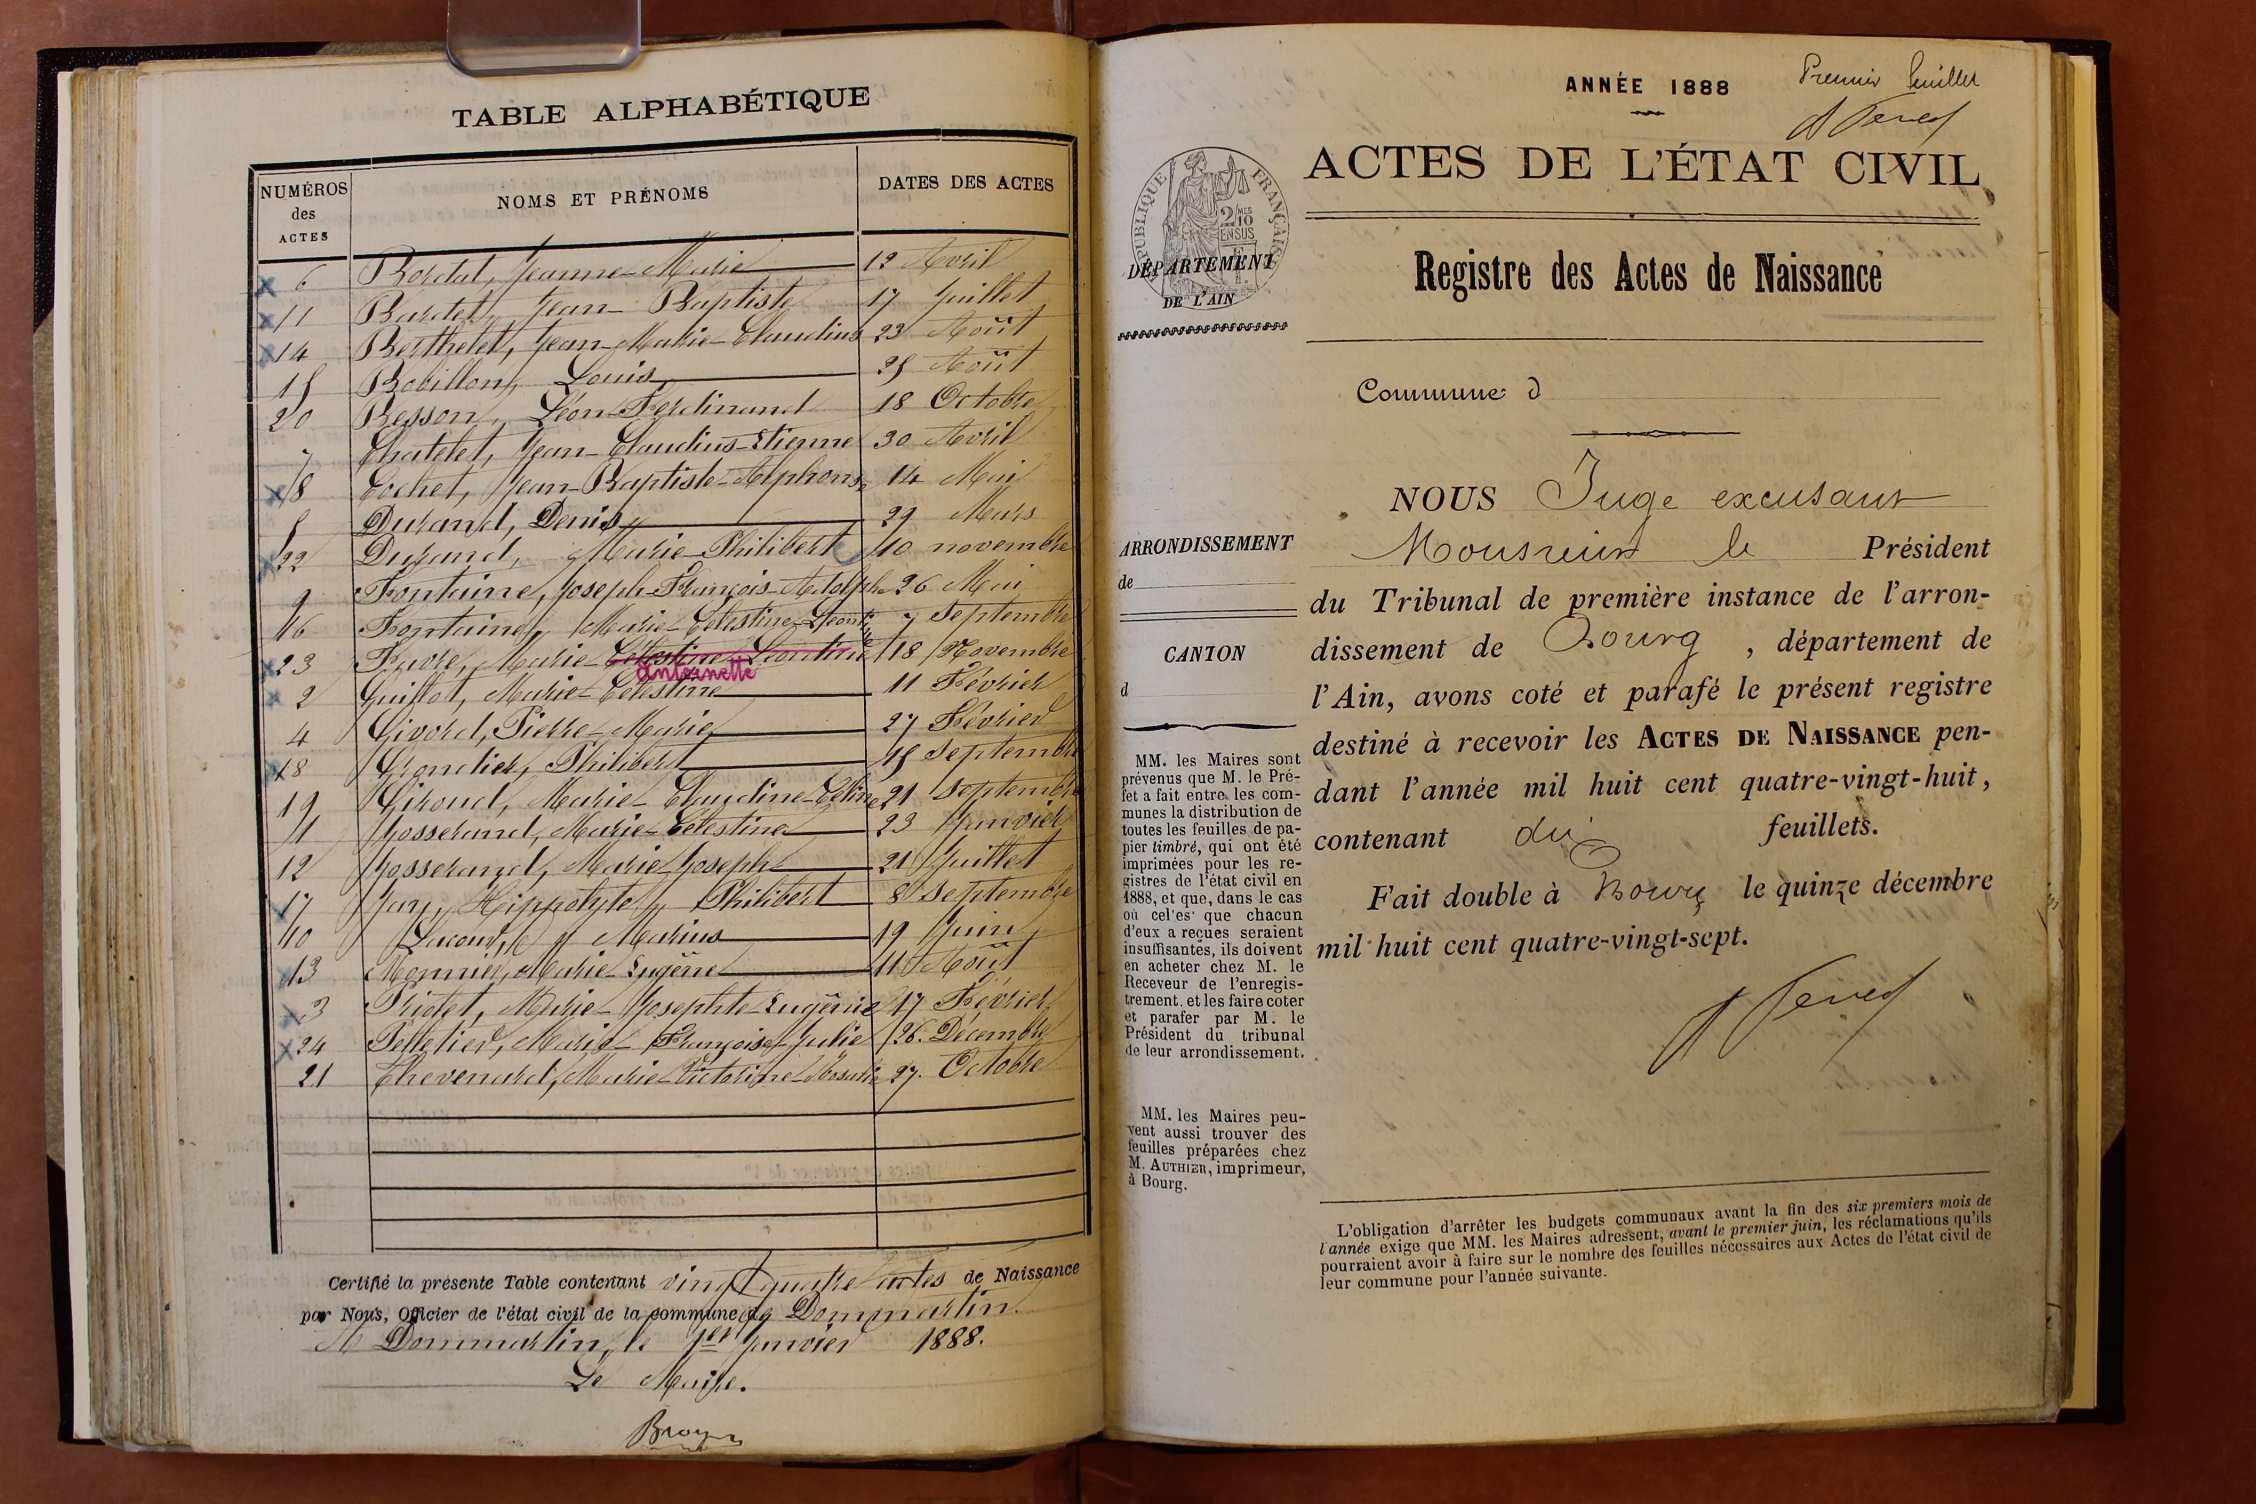 TABLE ALPHABÉTIQUE
NUMÉROS des ACTES NOMS ET PRÉNOMS DATES DES ACTES
6 Bordat, Jeanne-Marie 12 Avril
11 Bardet, Jean-Baptiste 17 Juillet
14 Berthelet, Jean-Marie-Claudius 23 Août
15 Bobillon, Louis 25 Août
20 Besson, Léon-Ferdinand 18 Octobre
7 Chatelet, Jean-Claudius-Etienne 30 Avril
8 Cochet, Jean-Baptiste-Alphonse 14 Mai
5 Durand, Denis 29 Mars
22 Durand, Marie-Philiberte 10 novembre
9 Fontaine, Joseph-François-Adolphe 26 Mai
16 Fontaine, Marie-Célestine-Léontine 7 Septembre
23 Favre, Marie-Célestine-Léontine 18 Novembre
Antoinette
2 Guillot, Marie-Célestine 11 Février
4 Givord, Pierre-Marie 27 Février
18 Grandier, Philibert 15 Septembre
19 Giroud, Marie-Claudine-Céline 21 Septembre
1 Josserand, Marie-Célestine 23 Janvier
12 Josserand, Marie-Joseph 21 Juillet
17 Jury, Hippolyte, Philibert 8 Septembre
10 Lacour, Marius 19 Juin
13 Monnier, Marie-Eugène 11 Août
3 Priotet, Marie-Josephte-Eugénie 17 Février
24 Pelletier, Marie-Françoise-Julie 26. Décembre
21 Thevenard, Marie-Victorine-Rosalie 27. Octobre
Certifié la présente Table contenant vingt quatre actes de Naissance
par Nous, Officier de l'état civil de la commune de Dommartin.
A Dommartin, le 1er Janvier 1888.
Le Maire.
ANNÉE 1888
Premier feuillet
ACTES DE L'ÉTAT CIVIL
RÉPUBLIQUE FRANÇAISE
2/10 MES
EN SUS
DÉPARTEMENT
DE L'AIN
Registre des Actes de Naissance
Commune d
NOUS Juge excusant
Monsieur le Président
du Tribunal de première instance de l'arron-
dissement de Bourg, département de
l'Ain, avons coté et parafé le présent registre
destiné à recevoir les ACTES DE NAISSANCE pen-
dant l'année mil huit cent quatre-vingt-huit,
contenant dix feuillets.
Fait double à Bourg le quinze décembre
mil huit cent quatre-vingt-sept.
ARRONDISSEMENT
de
CANTON
d
MM. les Maires sont
prévenus que M. le Pré-
fet a fait entre les com-
munes la distribution de
toutes les feuilles de pa-
pier timbré, qui ont été
imprimées pour les re-
gistres de l'état civil en
1888, et que, dans le cas
où celles que chacun
d'eux a reçues seraient
insuffisantes, ils doivent
en acheter chez M. le
Receveur de l'enregis-
trement, et les faire coter
et parafer par M. le
Président du tribunal
de leur arrondissement.
MM. les Maires peu-
vent aussi trouver des
feuilles préparées chez
M. AUTHIER, imprimeur,
à Bourg.
L'obligation d'arrêter les budgets communaux avant la fin des six premiers mois de
l'année exige que MM. les Maires adressent, avant le premier juin, les réclamations qu'ils
pourraient avoir à faire sur le nombre des feuilles nécessaires aux Actes de l'état civil de
leur commune pour l'année suivante.